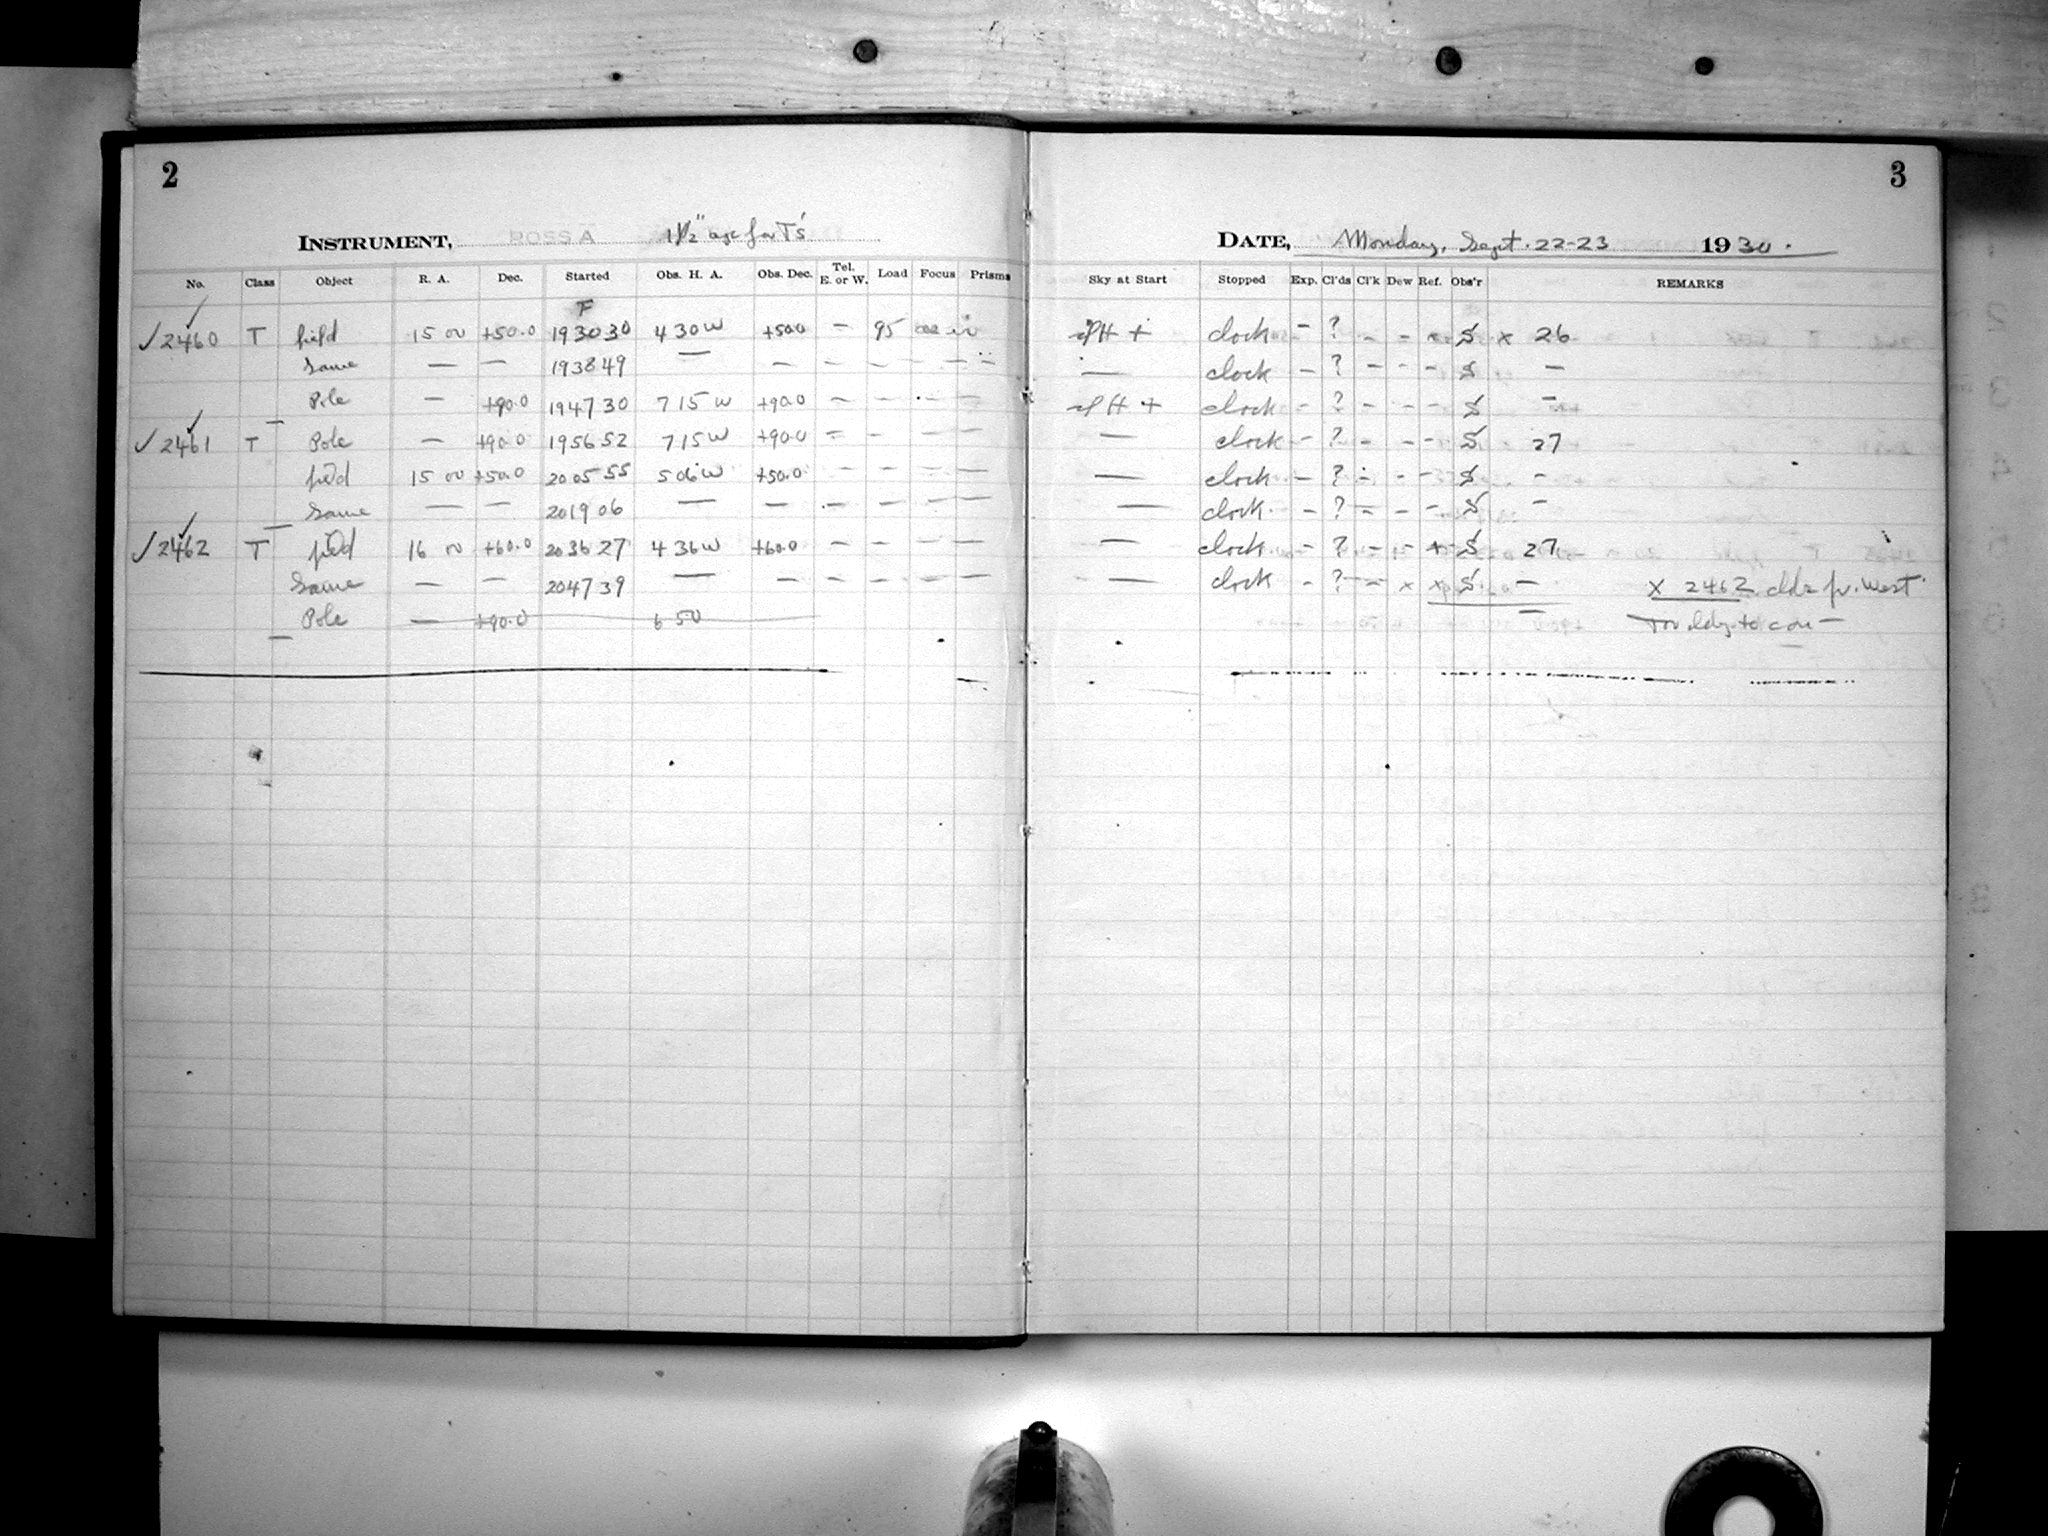 2
INSTRUMENT, ROSS A 1½" ape for T's
No. Class Object R. A. Dec. Started Obs. H. A. Obs. Dec. Tel. E. or W. Load Focus Prisms
F
✓2460 T field 15 00 +50.0 193030 4 30 W +50.0 — 95
Same — — 193849 — — — — — —
Pole — +90.0 194730 7 15 W +90.0 — — — —
✓2461 T Pole — +90.0 195652 7 15 W +90.0 — — — —
field 15 00 +50.0 200555 5 06 W +50.0 — — — —
Same — — 201906 — — — — — —
✓2462 T field 16 00 +60.0 203627 4 36 W +60.0 — — — —
Same — — 204739 — — — — — —
Pole — +90.0 6 50
3
DATE, Monday, Sept. 22-23 1930.
Sky at Start Stopped Exp. Cl'ds Cl'k Dew Ref. Obs'r REMARKS
H + clock – ? – – S x 26
— clock – ? – – – S —
H + clock – ? – – – S —
— clock – ? – – – S 27
— clock – ? – – – S —
— clock – ? – – – S —
— clock – ? – – S 27
— clock – ? – – x x S — X 2462 clds fr. West